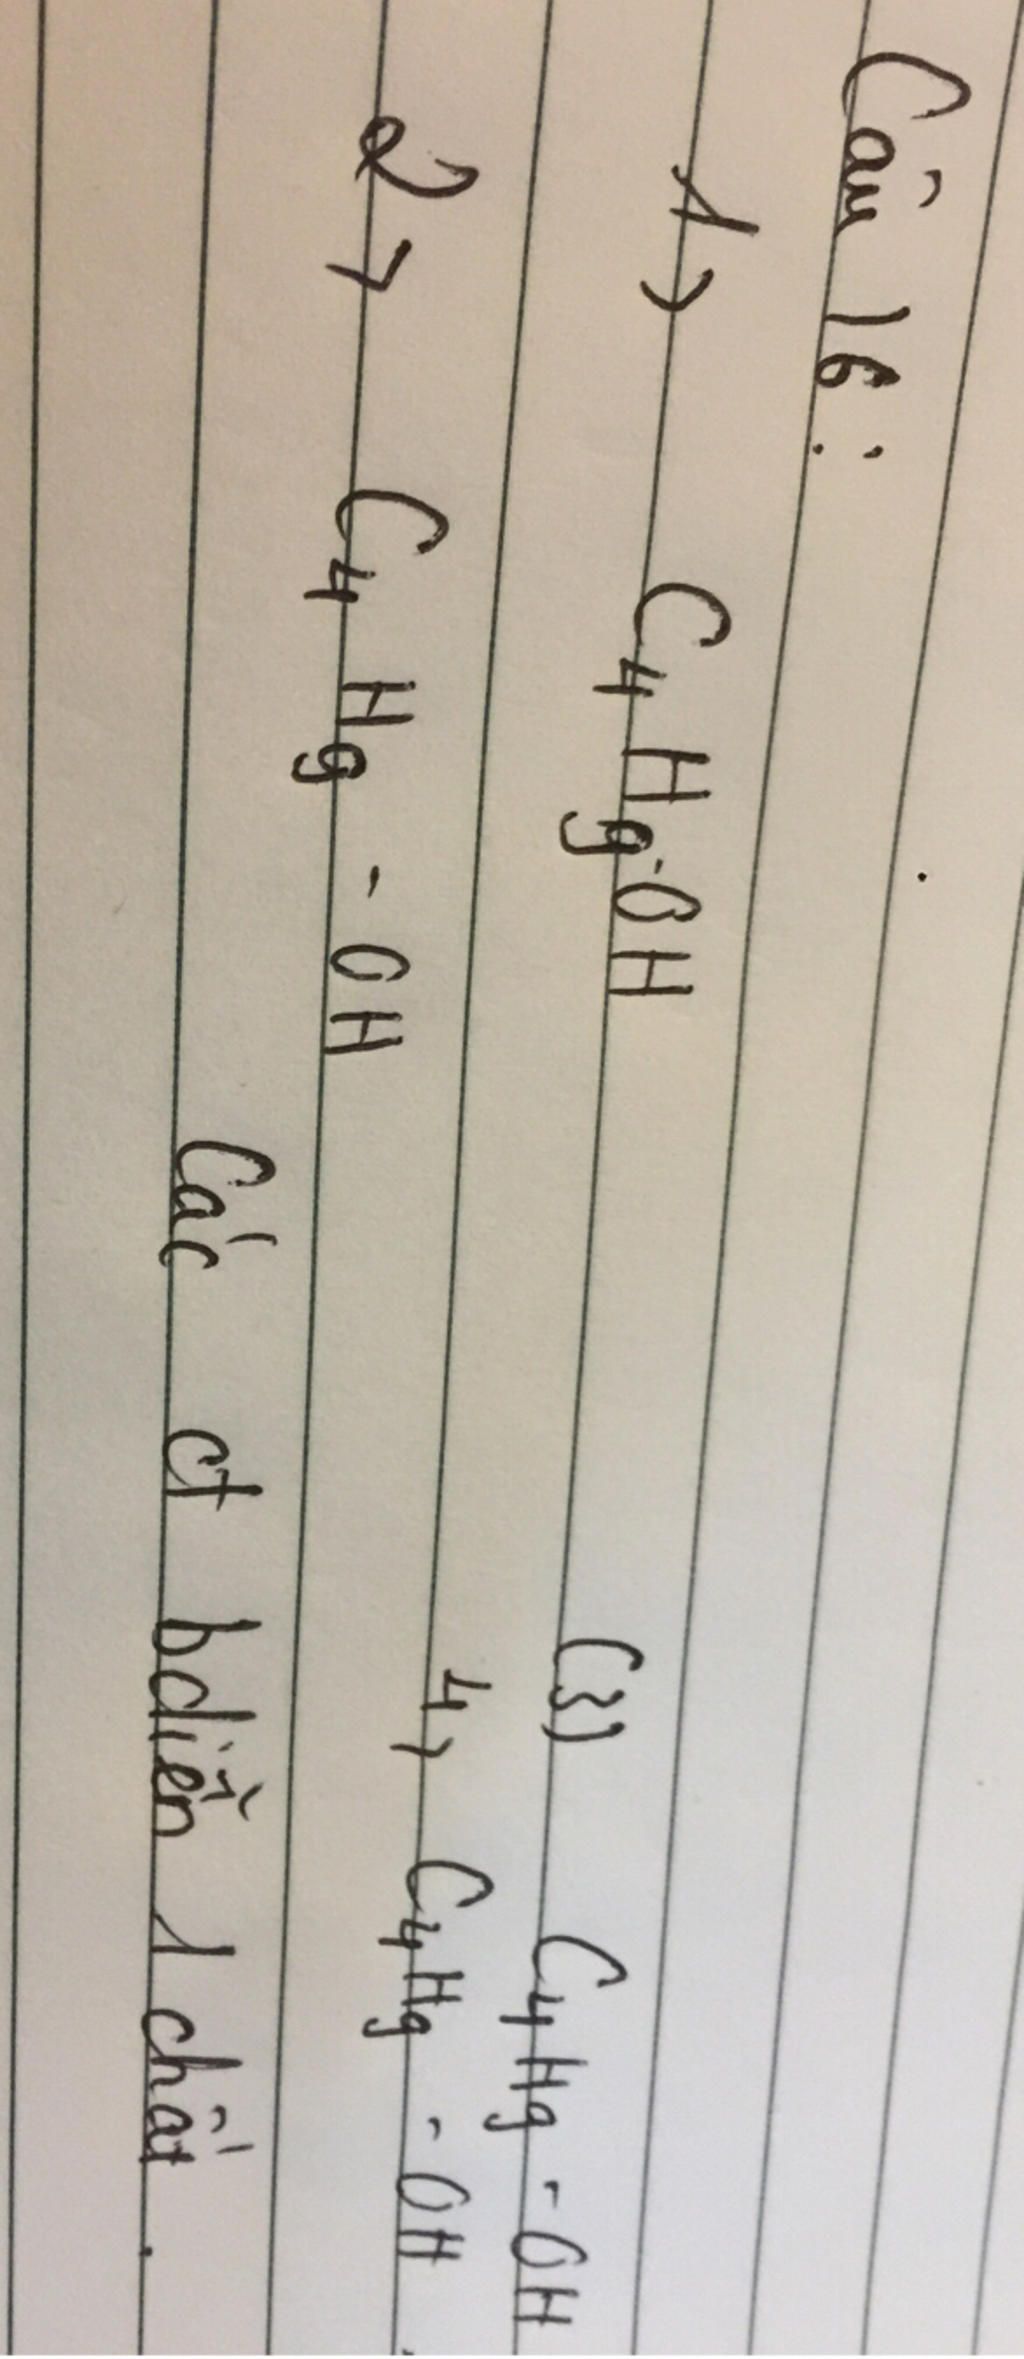 Câu 16:
1) C4H9-OH
(3) C4H9-OH
2) C4H9-OH
4) C4H9-OH.
Các ct bdiễn 1 chất.